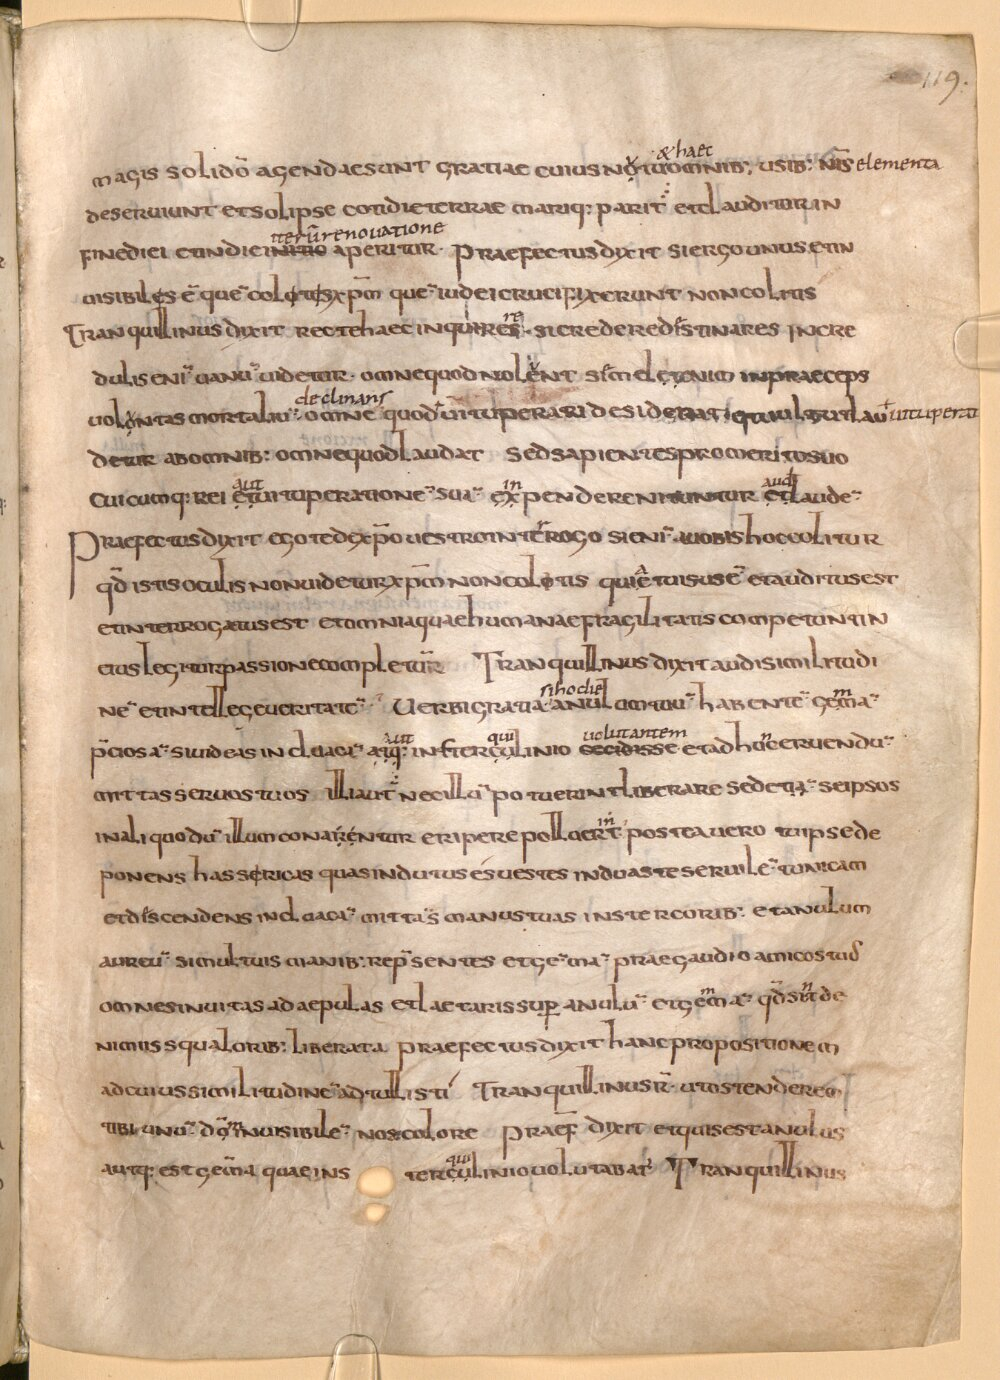 119.
magis solidō agenda esunt gratiae cuius nō iuomnib; & haec usib; nr̄is elementa
deseruiunt et solipse cotidie terrae mariq; parit̄ et clauditur in
fine diei et in die initio iterū renouatione aperitur. Praefectus dixit si ergo unus et in
uisibilis ē quē colitis xp̄m quē iudei crucifixerunt non colitis
Tranquillinus dixit recte haec inquireres re si credere distinares incre
dulis enī uanū uidetur. omne quod nolent
uoluntas mortaliū declinans omne quod uituperari desiderat uituperat
detur ab omnib; omne quod laudat sed sapientes pro merito suo
cuicumq; rei aut et uituperationē suā in expendere nituntur aud et laudē
Praefectus dixit ego te de xp̄o uestro interrogo si enī a uobis hoc colitur
qd̄ istis oculis non uidetur xp̄m non colitis quiā et uisus ē et auditus est
et interrogatus est et omnia quae humanae fragilitatis competunt in
eius legitur passione completur Tranquillinus dixit audi similitudi
nē et intellege ueritatē Uerbi gratia si hodie anulum tuū habentē gemmā
p̄ciosā si uideas in cloacā aut atq; in sterquilinio uolutantem cecidisse et adhuc eruendū
mittas seruos tuos illi aut nec illū potuerint liberare sed etiā seipsos
in aliquo dū illum conarentur eripere polluerint postea uero tu ipse de
ponens has sericas quas indutus es uestes induas te seruilē tunicam
et discendens in cloacā mittas manus tuas in stercorib; et anulum
aureū simul tuis manib; rep̄sentes et gemmā prae gaudio amicos tuos
omnes inuitas ad aepulas et laetaris super anulū et gemmā qd̄ sint de
nimiis squalorib; liberata praefectus dixit hanc propositionem
ad cuius similitudinē adtullisti Tranquillinus r̄ ut ostenderem
tibi unū dm̄ inuisibilē nos colore Praef dixit et quis est anulus
aut q; est gemma quae in sterquilinio uolutabat̄ Tranquillinus